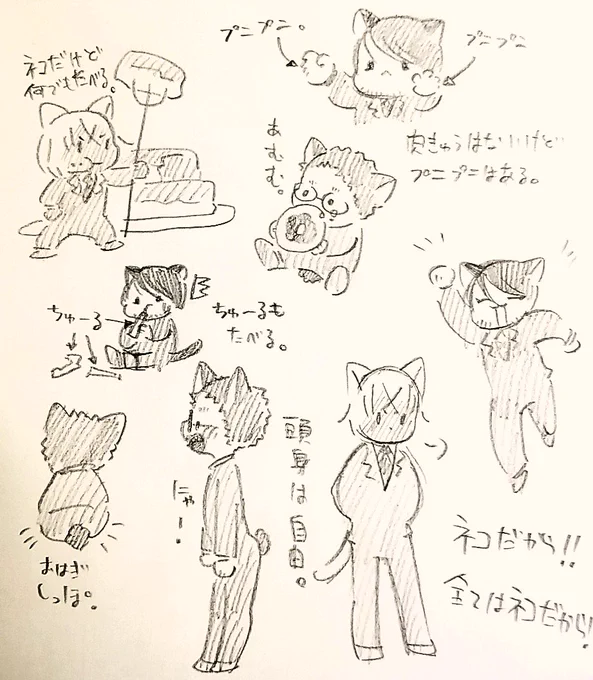 プニプニ。
プニプニ
ネコだけど
何でもたべる。
あむむ。
肉きゅうはないけど
プニプニはある。
ちゅーる
ちゅーるも
たべる。
頭身は自由。
にゃー!
おはぎ
しっぽ。
ネコだから!!
全てはネコだから!